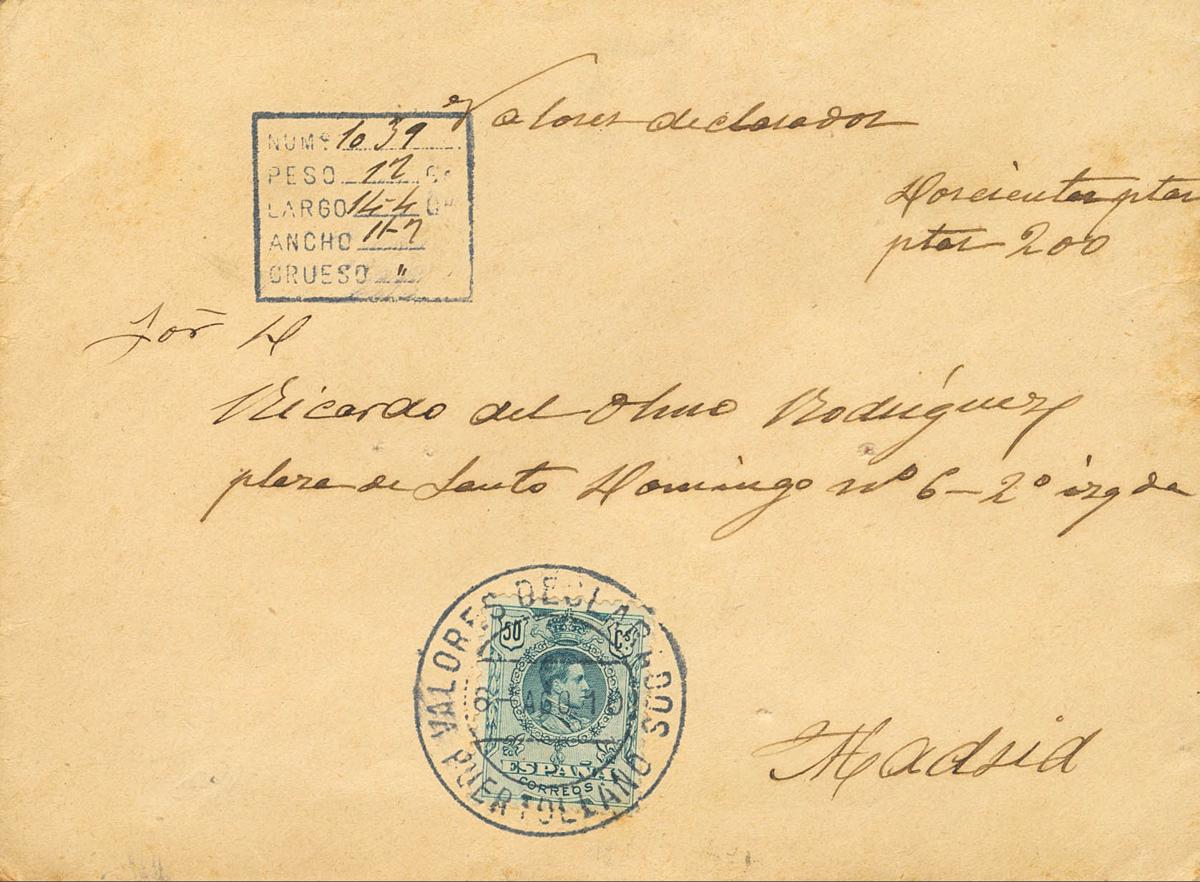 Valores declarados
Doscientas ptas
ptas 200
NUMº 1039
PESO 17 Gs
LARGO 14-4
ANCHO 11-7
GRUESO "
Sor D
Ricardo del Olmo Rodríguez
plaza de Santo Domingo nº 6-2º izqda
VALORES DECLARADOS
50 Cs
8-AGO-1
ESPAÑA
CORREOS
PUERTOLLANO
Madrid